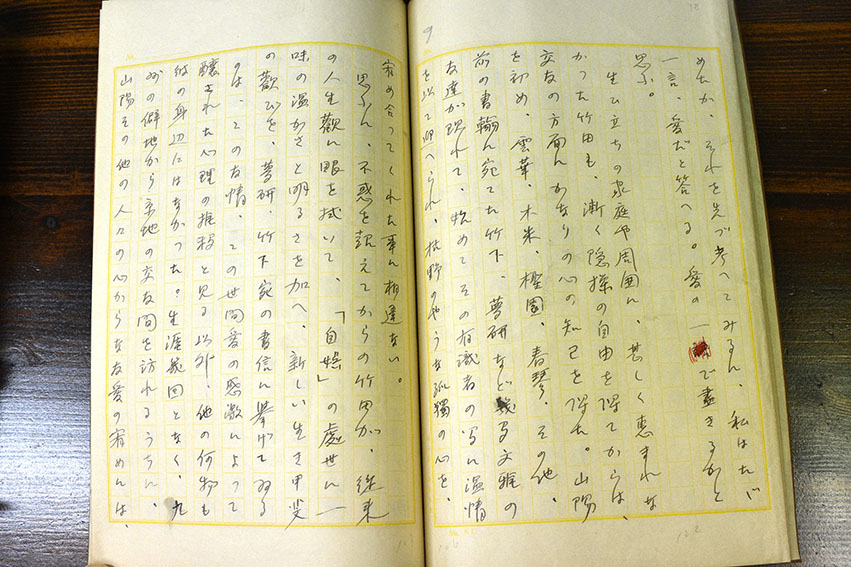 めたか、それを先づ考へてみるに、私はたゞ
一言、愛だと答へる。愛の一で盡きるかと
思ふ。
生ひ立ちの家庭や周囲に、甚しく惠まれな
かつた竹田も、漸く隠操の自由を得てからは、
交友の方面にかなりの心の知己を得た。山陽
を初め、雲華、木米、樫園、春琴、その他、
前の書翰に宛てた竹下、夢研など文雅の
友達が現れて、始めてその有識者の温情
を以て迎へられ、枯野のやうな孤獨の心を、
9
宥め合つてくれた事に相違ない。
思ふに、不惑を越えてからの竹田が、従来
の人生觀に眼を拭いて、「自娯」の處世に一
味の温かさと明るさを加へ、新しい生き甲斐
の歡びを、夢研、竹下宛の書信に擧げてゐる
のは、この友情、この世間愛の感激によつて
醸された心理の推移と見る以外、他の何物も
彼の身辺にはなかつた。生涯幾回となく、九
州の僻地から京地の交友間を訪れるうちに、
山陽その他の人々の心からな友愛の宥めには、